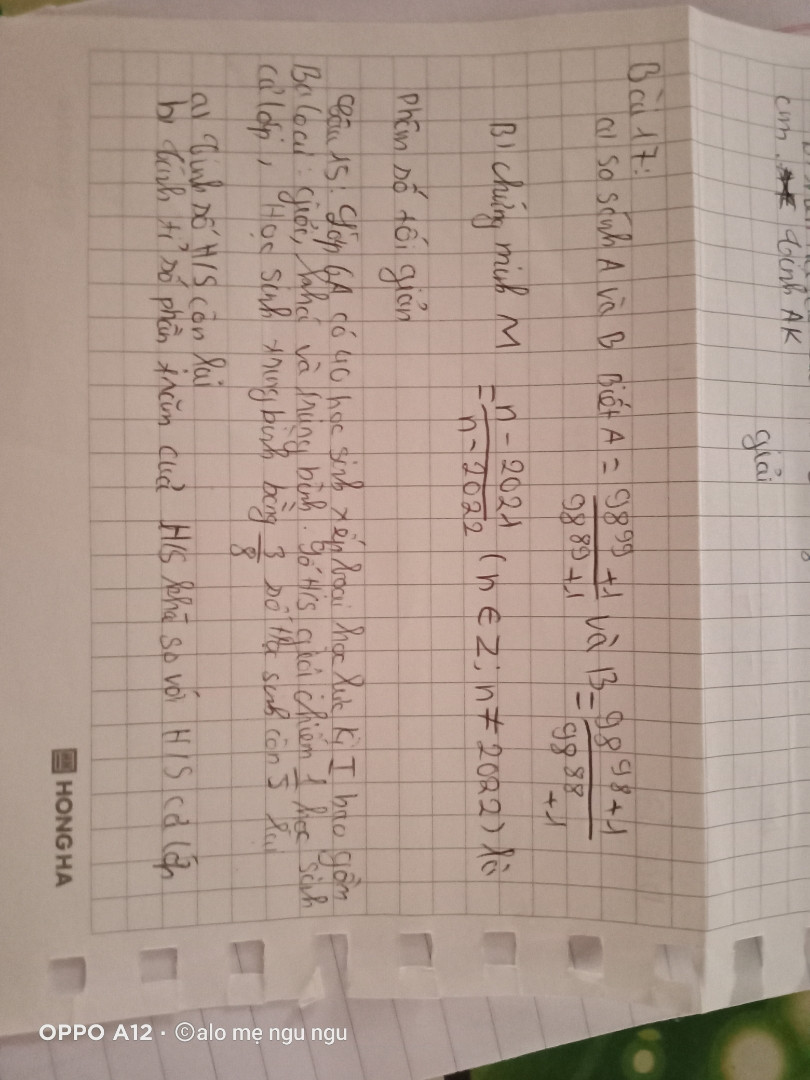 cm. tính AK
giải
Bài 17:
a) So sánh A và B Biết A = 98^99 + 1 / 98^89 + 1 và B = 98^98 + 1 / 98^88 + 1
B) chứng minh M = n - 2021 / n - 2022 (n ∈ Z; n ≠ 2022) là
phân số tối giản
Câu 15: lớp 6A có 40 học sinh xếp loại học lực kì I bao gồm
Ba loại: giỏi, khá và trung bình. Số H/S giỏi chiếm 1/5 học sinh
cả lớp, Học sinh trung bình bằng 3/8 số học sinh còn lại
a) tính số H/S còn lại
b) tính tỉ số phần trăm của H/S khá so với H/S cả lớp
HONG HA
OPPO A12 · ©alo mẹ ngu ngu